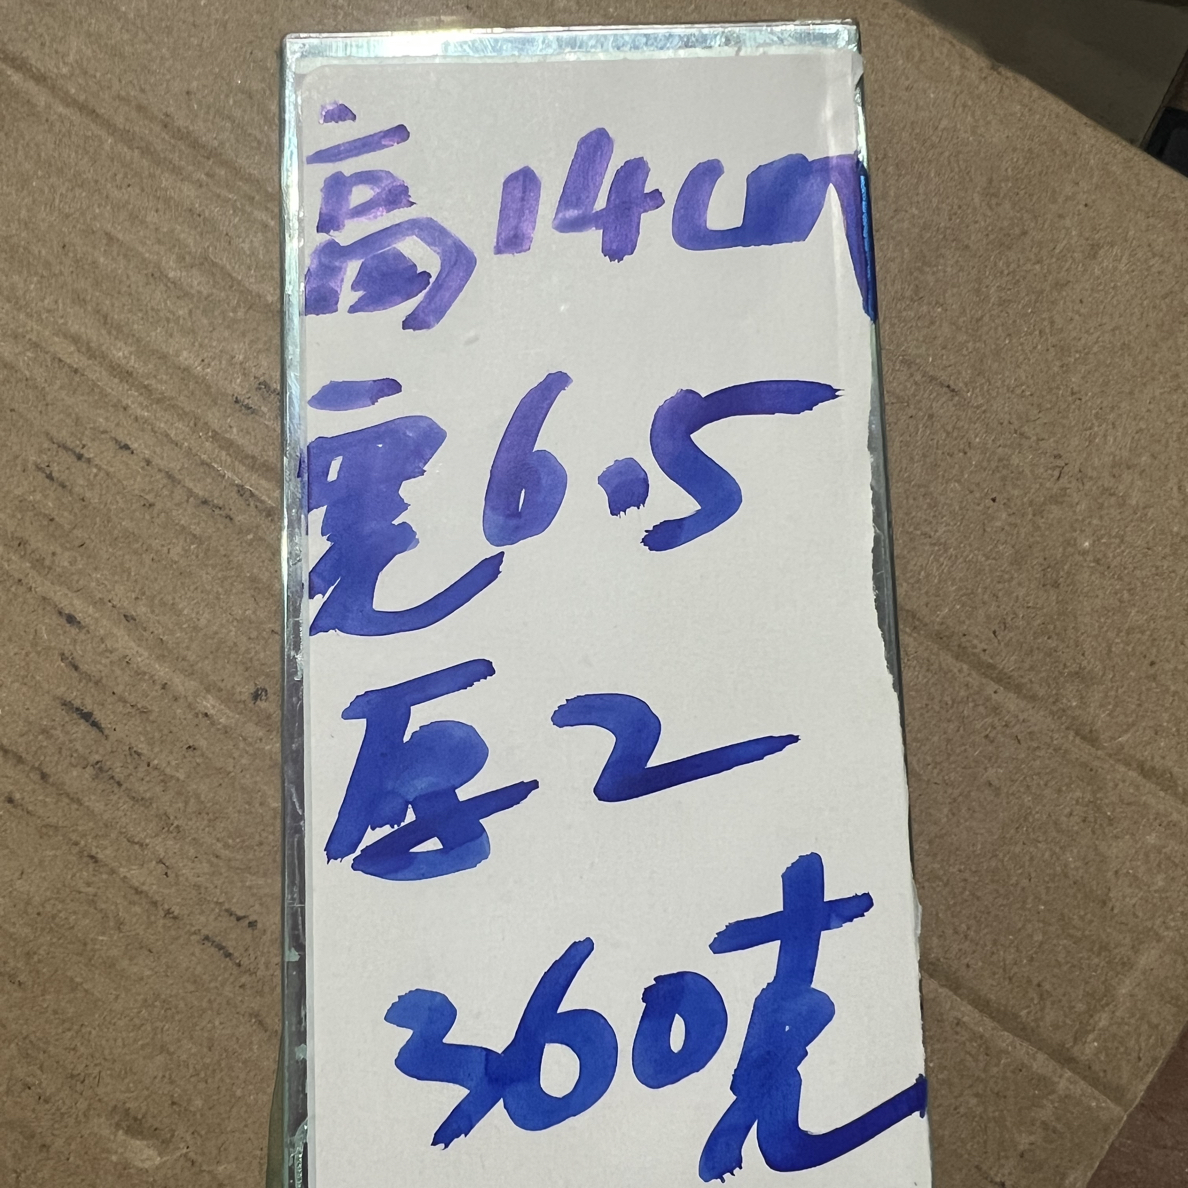 高14cm
宽6.5
厚2
360克